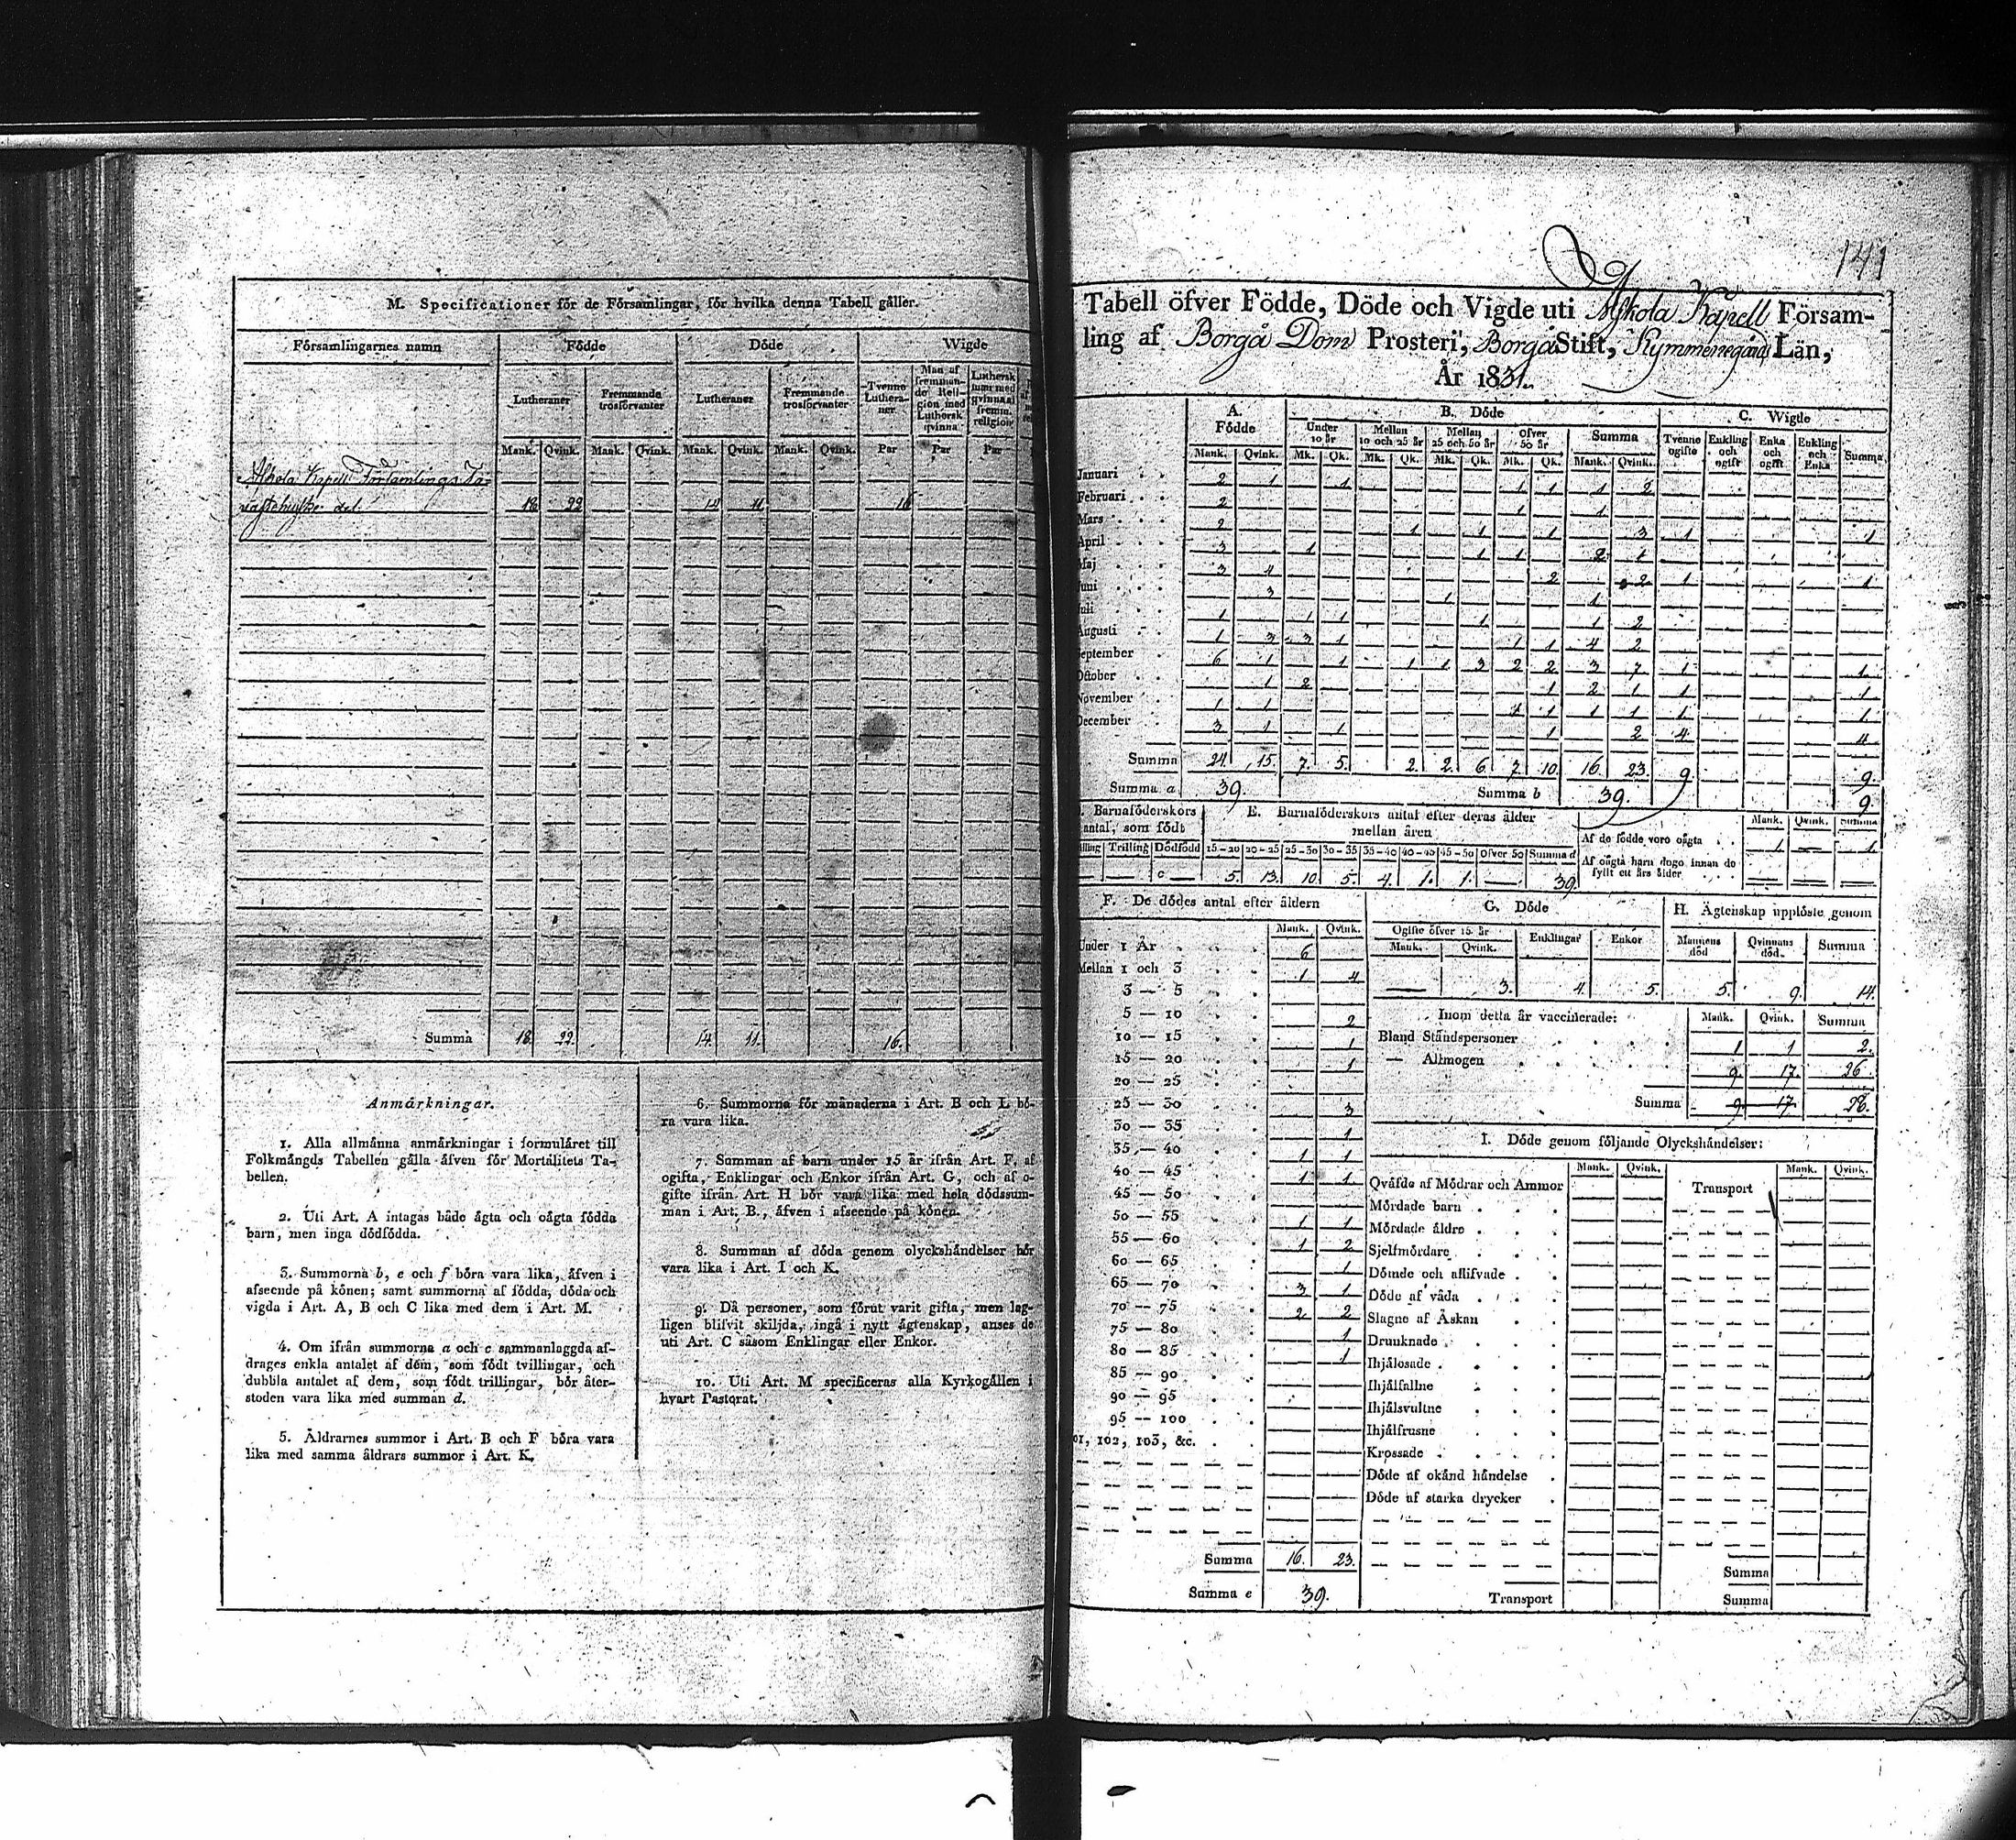 M. Specificationer för de Församlingar, för hvilka denna Tabell gäller.
Församlingarnes namn Födde Döde Wigde
Lutheraner Fremmande trosförvanter Lutheraner Fremmande trosförvanter Tvenne Lutheraner Man af fremmande Religion med Luthersk qvinna Luthersk man med qvinna af fremm. religion
Mank. Qvink. Mank. Qvink. Mank. Qvink. Mank. Qvink. Par Par Par
Askola Kapell Församlings Ta-
vastehuske del. 18 22 14 11 16
Summa 18. 22. 14. 11. 16.
Anmärkningar.
1. Alla allmänna anmärkningar i formuläret till
Folkmängds Tabellen gälla äfven för Mortalitets Ta-
bellen.
2. Uti Art. A intagas både ägta och oägta födda
barn, men inga dödfödda.
3. Summorna b, e och f böra vara lika, äfven i
afseende på könen; samt summorna af födda, döda och
vigda i Art. A, B och C lika med dem i Art. M.
4. Om ifrån summorna a och c sammanlaggda af-
drages enkla antalet af dem, som födt tvillingar, och
dubbla antalet af dem, som födt trillingar, bör åter-
stoden vara lika med summan d.
5. Åldrarnes summor i Art. B och F böra vara
lika med samma åldrars summor i Art. K.
6. Summorna för månaderna i Art. B och L bö-
ra vara lika.
7. Summan af barn under 15 år ifrån Art. F, af
ogifta, Enklingar och Enkor ifrån Art. G, och af o-
gifte ifrån Art. H bör vara lika med hela dödssum-
man i Art. B., äfven i afseende på könen.
8. Summan af döda genom olyckshändelser bör
vara lika i Art. I och K.
9. Då personer, som förut varit gifta, men lag-
ligen blifvit skiljda, ingå i nytt ägtenskap, anses de
uti Art. C såsom Enklingar eller Enkor.
10. Uti Art. M specificeras alla Kyrkogällen i
hvart Pastorat.
141
Tabell öfver Födde, Döde och Vigde uti Askola Kapell Försam-
ling af Borgå Dom Prosteri, Borgå Stift, Kymmenegårds Län,
År 1831.
A. Födde B. Döde C. Wigde
Under 10 år Mellan 10 och 25 år Mellan 25 och 50 år Öfver 50 år Summa Tvenne ogifte Enkling och ogift Enka och ogift Enkling och Enka Summa
Mank. Qvink. Mk. Qk. Mk. Qk. Mk. Qk. Mk. Qk. Mank. Qvink.
Januari 2 1 1 1 1 1 2
Februari 2 1 1
Mars 2 1 1 1 3 1 1
April 3 1 1 1 2 1
Maj 3 4 2 2 1 1
Juni 3 1 1
Juli 1 1 1 1 1 2
Augusti 1 3 3 1 1 1 4 2
September 6 1 1 1 1 3 2 2 3 7 1 1
Oktober 1 2 1 2 1 1 1
November 1 1 1 1 1 1 1 1
December 3 1 1 1 2 4 4
Summa 24 15. 7. 5. 2. 2. 6. 7. 10. 16. 23. 9. 9.
Summa a 39. Summa b 39. 9.
Barnaföderskors antal, som födt
Trilling Dödfödd
c
E. Barnaföderskors antal efter deras ålder
mellan åren
15-20 20-25 25-30 30-35 35-40 40-45 45-50 öfver 50 Summa d
5. 13. 10. 5. 4. 1. 1. — 39.
Mank. Qvink. Summa
Af de födde voro oägta 1 — 1
Af oägta barn dogo innan de
fyllt ett års ålder
F. De dödes antal efter åldern
Mank. Qvink.
Under 1 År 6
Mellan 1 och 3 1 4
3 — 5
5 — 10 2
10 — 15 1
15 — 20 1
20 — 25
25 — 30 3
30 — 35 1
35 — 40 1 1
40 — 45 1 1
45 — 50
50 — 55 1 1
55 — 60 1 2
60 — 65 1
65 — 70 3 1
70 — 75 2 2
75 — 80 1
80 — 85 1
85 — 90
90 — 95
95 — 100
101, 102, 103, &c.
Summa 16. 23.
Summa e 39.
G. Döde
Ogifte öfver 15 år Enklingar Enkor
Mank. Qvink.
— 3. 4. 5.
H. Ägtenskap upplöste genom
Mannens död Qvinnans död Summa
5. 9. 14.
Inom detta år vaccinerade: Mank. Qvink. Summa
Bland Ståndspersoner 1 1 2.
— Allmogen 9. 17. 26.
Summa 9. 17. 28.
I. Döde genom följande Olyckshändelser:
Mank. Qvink. Mank. Qvink.
Qväfde af Mödrar och Ammor Transport
Mördade barn
Mördade äldre
Sjelfmördare
Dömde och aflifvade
Döde af våda
Slagne af Åskan
Drunknade
Ihjälosade
Ihjälfallne
Ihjälsvultne
Ihjälfrusne
Krossade
Döde af okänd händelse
Döde af starka drycker
Summa
Transport Summa